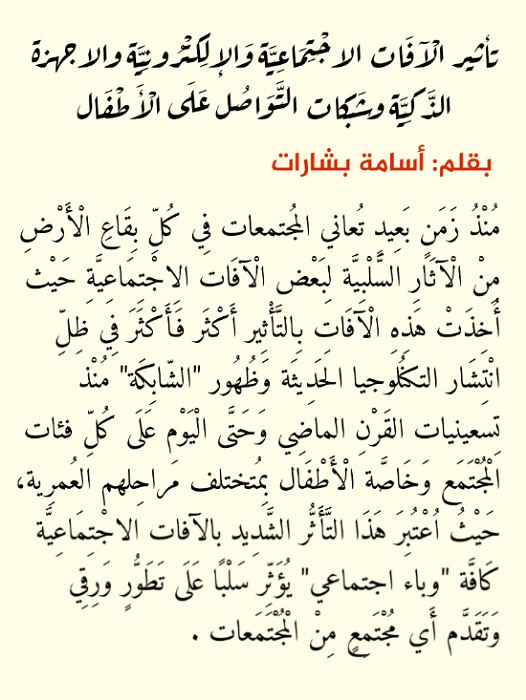 تأثير الْآفَات الاجْتِمَاعِيَّة وَالإلِكتْرُونِيَّة والاجهزة
الذَّكِيَّة وشَبَكات التَّوَاصُل عَلَى الْأَطْفَال
بقلم: أسامة بشارات
مُنْذُ زَمَنٍ بَعِيدِ تُعاني المُجتمعات فِي كُلِّ بِقَاعِ الْأَرْضِ
مِنْ الْآثَارِ السَّلْبِيَّة لِبَعْض الْآفَات الاجْتماعِيَّةِ حَيْث
أُخِذَتْ هَذِهِ الْآفَاتِ بِالتَّأْثِير أَكْثَر فَأَكْثَرَ فِي ظِلِّ
انْتِشَار التكنُلوجيا الحَدِيثَة وَظُهُور "الشّابِكَة" مُنْذ
تِسعينيات القَرْنِ الماضِي وَحَتَّى الْيَوْم عَلَى كُلِّ فئات
الْمُجْتَمَع وَخَاصَّة الْأَطْفَال بِمُتختلف مَراحِلهم العُمرِية،
حَيْثُ اُعْتُبِرَ هَذَا التَّأَثُّر الشَّدِيد بالآفات الاجْتِمَاعِيَّة
كَافَّة "وباء اجتماعي" يُؤَثِّر سَلْبًا عَلَى تَطَوُّرٍ وَرِقِي
وَتَقَدَّم أَي مُجْتَمَعٍ مِنْ الْمُجْتَمَعات .